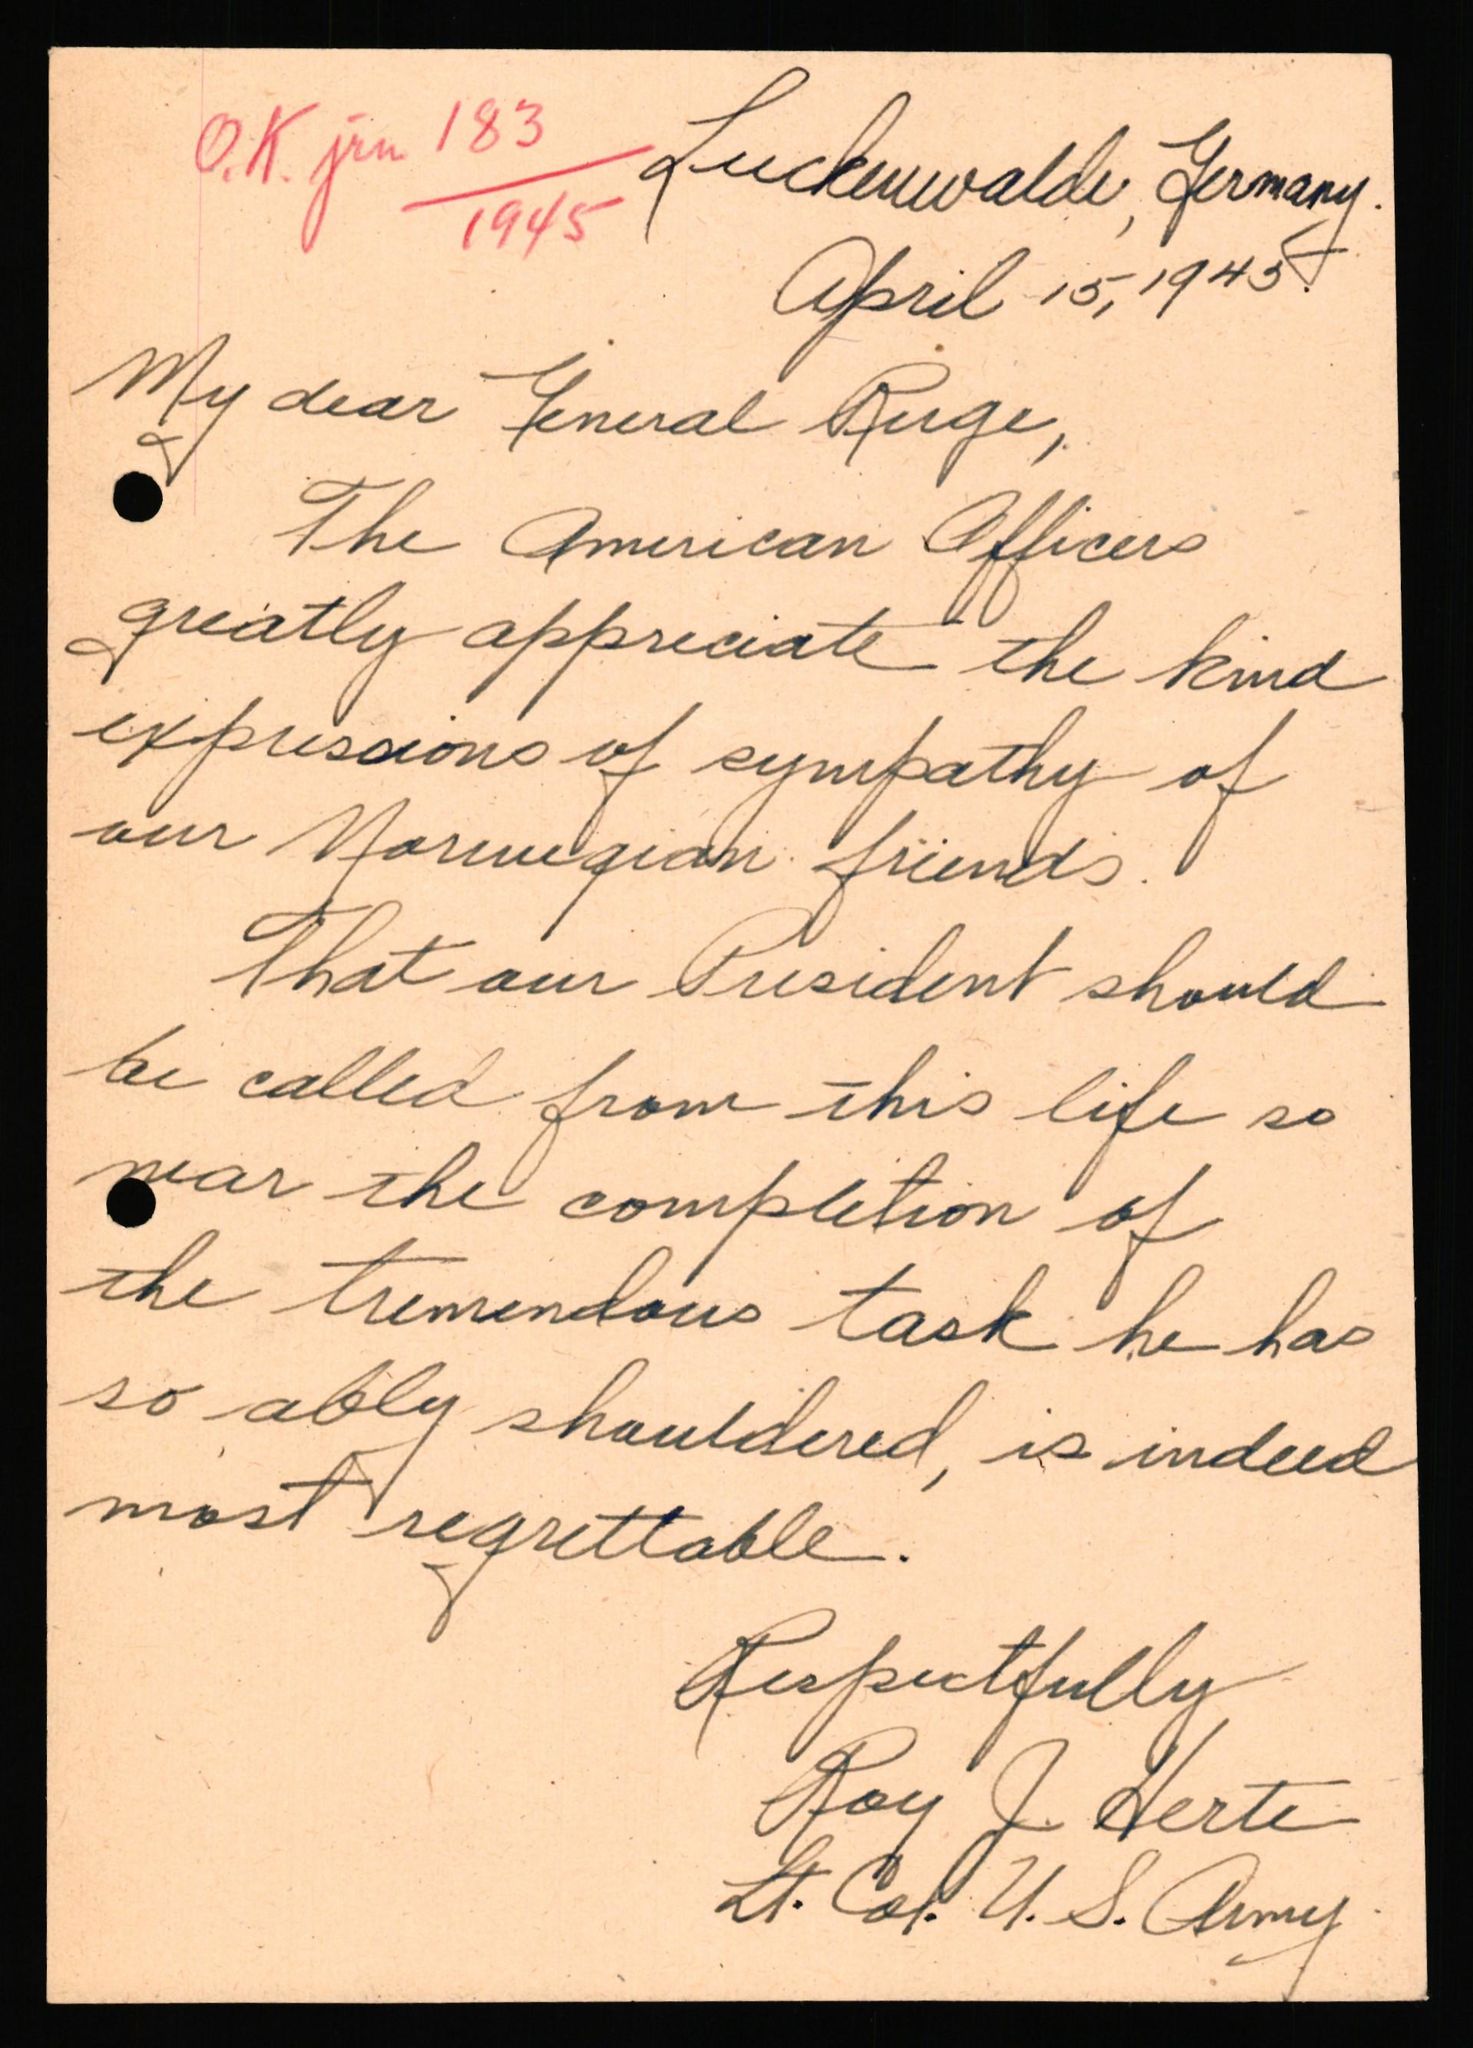 O.K. jrn 183
1945
Luckenwalde, Germany.
April 15, 1945.
My dear General Ruge,
The American Officers
greatly appreciate the kind
expressions of sympathy of
our Norwegian friends.
That our President should
be called from this life so
near the completion of
the tremendous task he has
so ably shouldered, is indeed
most regrettable.
Respectfully
Roy J. Herte
Lt. Col. U. S. Army